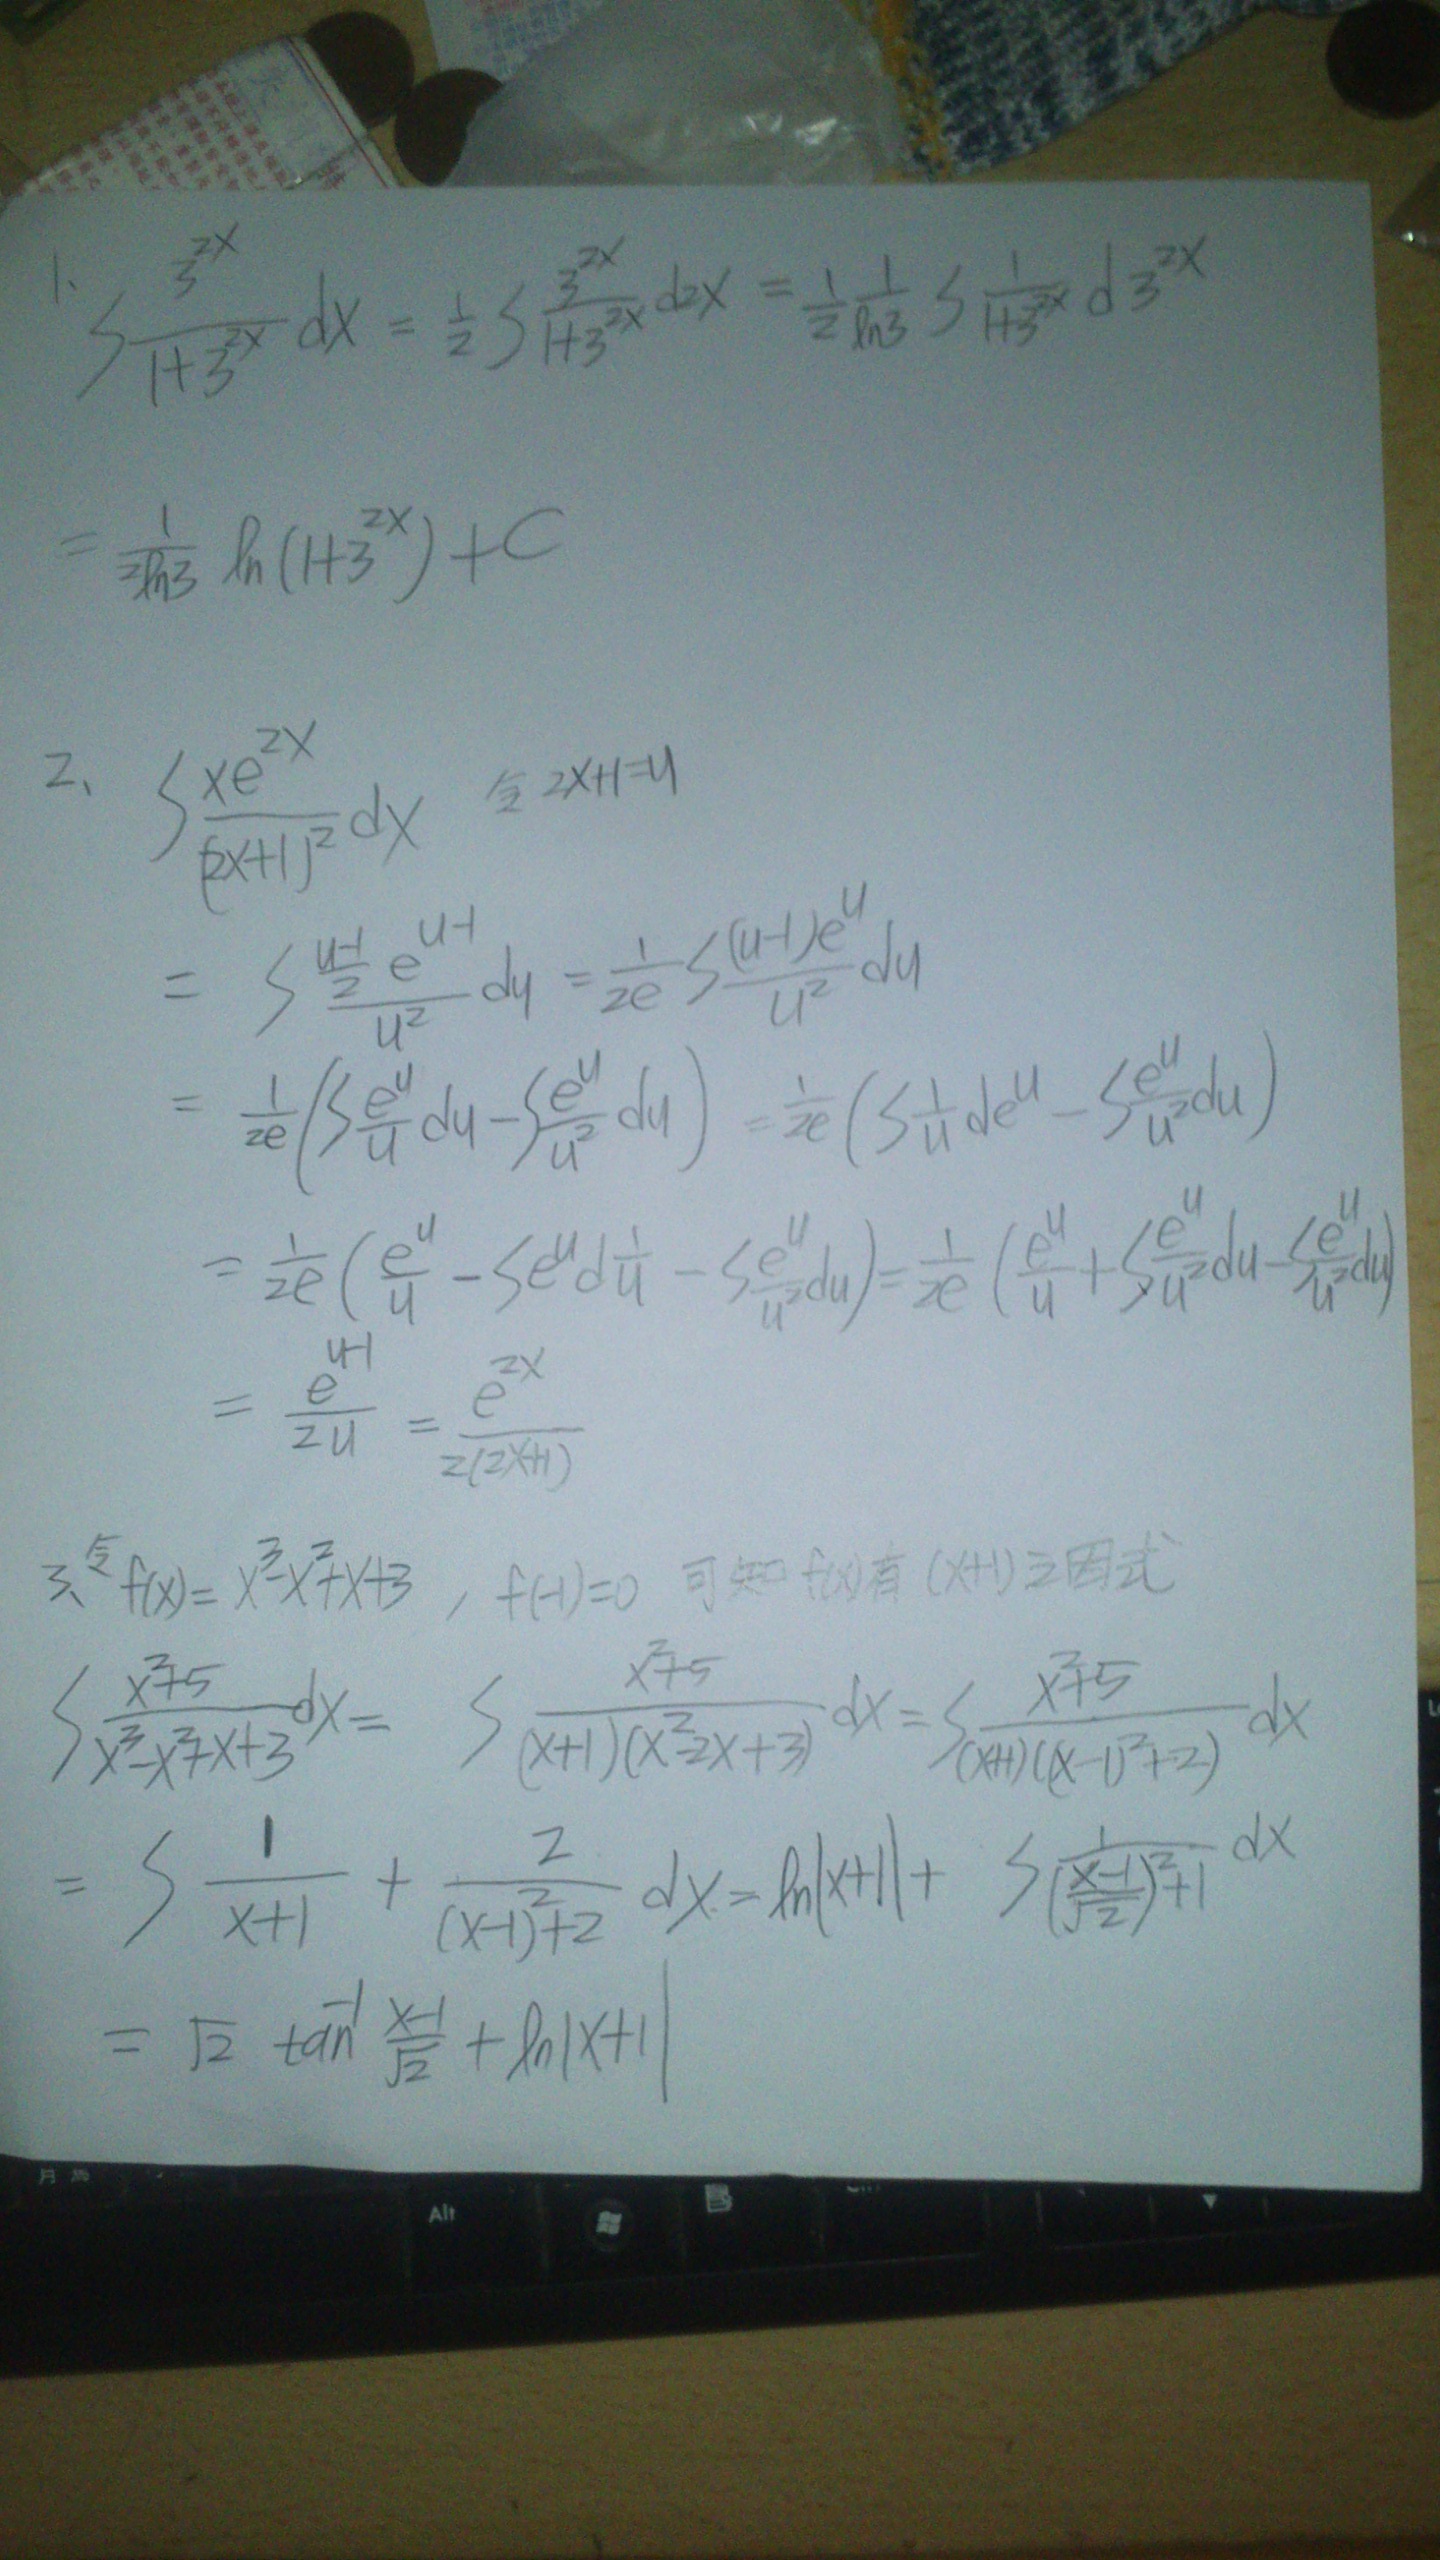 1. ∫ 3^{2x}/(1+3^{2x}) dx = 1/2 ∫ 3^{2x}/(1+3^{2x}) d2x = 1/2 1/ln3 ∫ 1/(1+3^{2x}) d3^{2x}
= 1/(2ln3) ln(1+3^{2x})+C
2、 ∫ xe^{2x}/(2x+1)^2 dx 令 2x+1=u
= ∫ (u-1)/2 e^{u-1}/u^2 du = 1/(2e) ∫ (u-1)e^u/u^2 du
= 1/(2e) (∫ e^u/u du - ∫ e^u/u^2 du) = 1/(2e) (∫ 1/u de^u - ∫ e^u/u^2 du)
= 1/(2e) (e^u/u - ∫ e^u d 1/u - ∫ e^u/u^2 du) = 1/(2e) (e^u/u + ∫ e^u/u^2 du - ∫ e^u/u^2 du)
= e^{u-1}/(2u) = e^{2x}/(2(2x+1))
3、令 f(x)= x^3-x^2+x+3 , f(-1)=0 可知 f(x)有 (x+1)之因式
∫ (x^2+5)/(x^3-x^2+x+3) dx = ∫ (x^2+5)/((x+1)(x^2-2x+3)) dx = ∫ (x^2+5)/((x+1)((x-1)^2+2)) dx
= ∫ 1/(x+1) + 2/((x-1)^2+2) dx = ln|x+1| + ∫ 1/(((x-1)/√2)^2+1) dx
= √2 tan^{-1} (x-1)/√2 + ln|x+1|
Alt